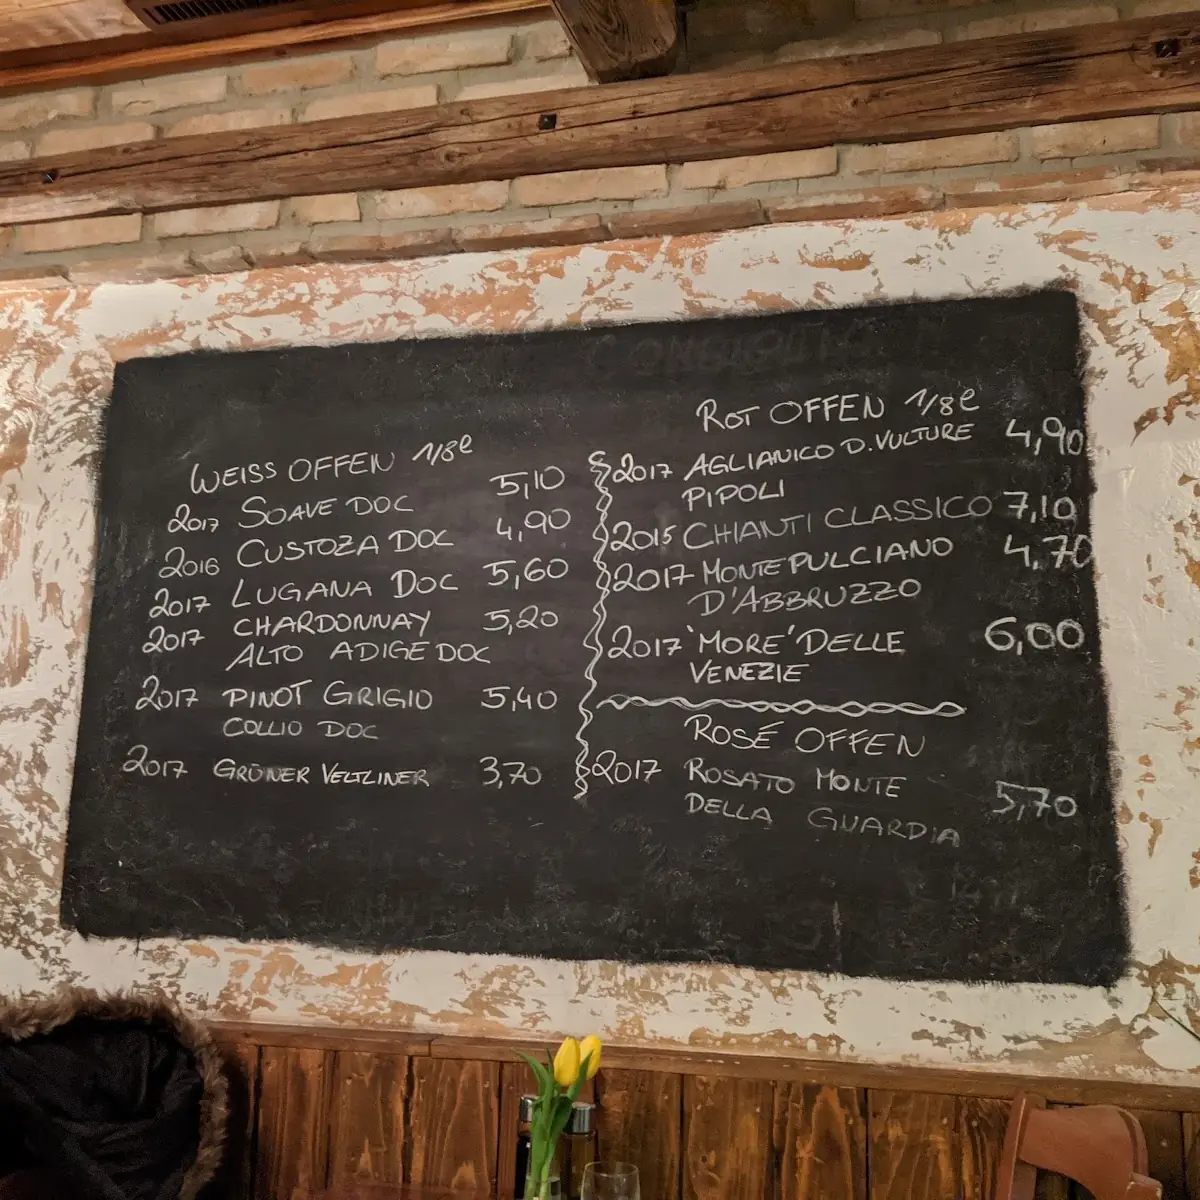 WEISS OFFEN 1/8 l
2017 SOAVE DOC 5,10
2016 CUSTOZA DOC 4,90
2017 LUGANA DOC 5,60
2017 CHARDONNAY 5,20
ALTO ADIGE DOC
2017 PINOT GRIGIO 5,40
COLLIO DOC
2017 GRÜNER VELTLINER 3,70
ROT OFFEN 1/8 l
2017 AGLIANICO D. VULTURE 4,90
PIPOLI
2015 CHIANTI CLASSICO 7,10
2017 MONTEPULCIANO 4,70
D'ABBRUZZO
2017 'MORE' DELLE 6,00
VENEZIE
ROSÉ OFFEN
2017 ROSATO MONTE
DELLA GUARDIA 5,70